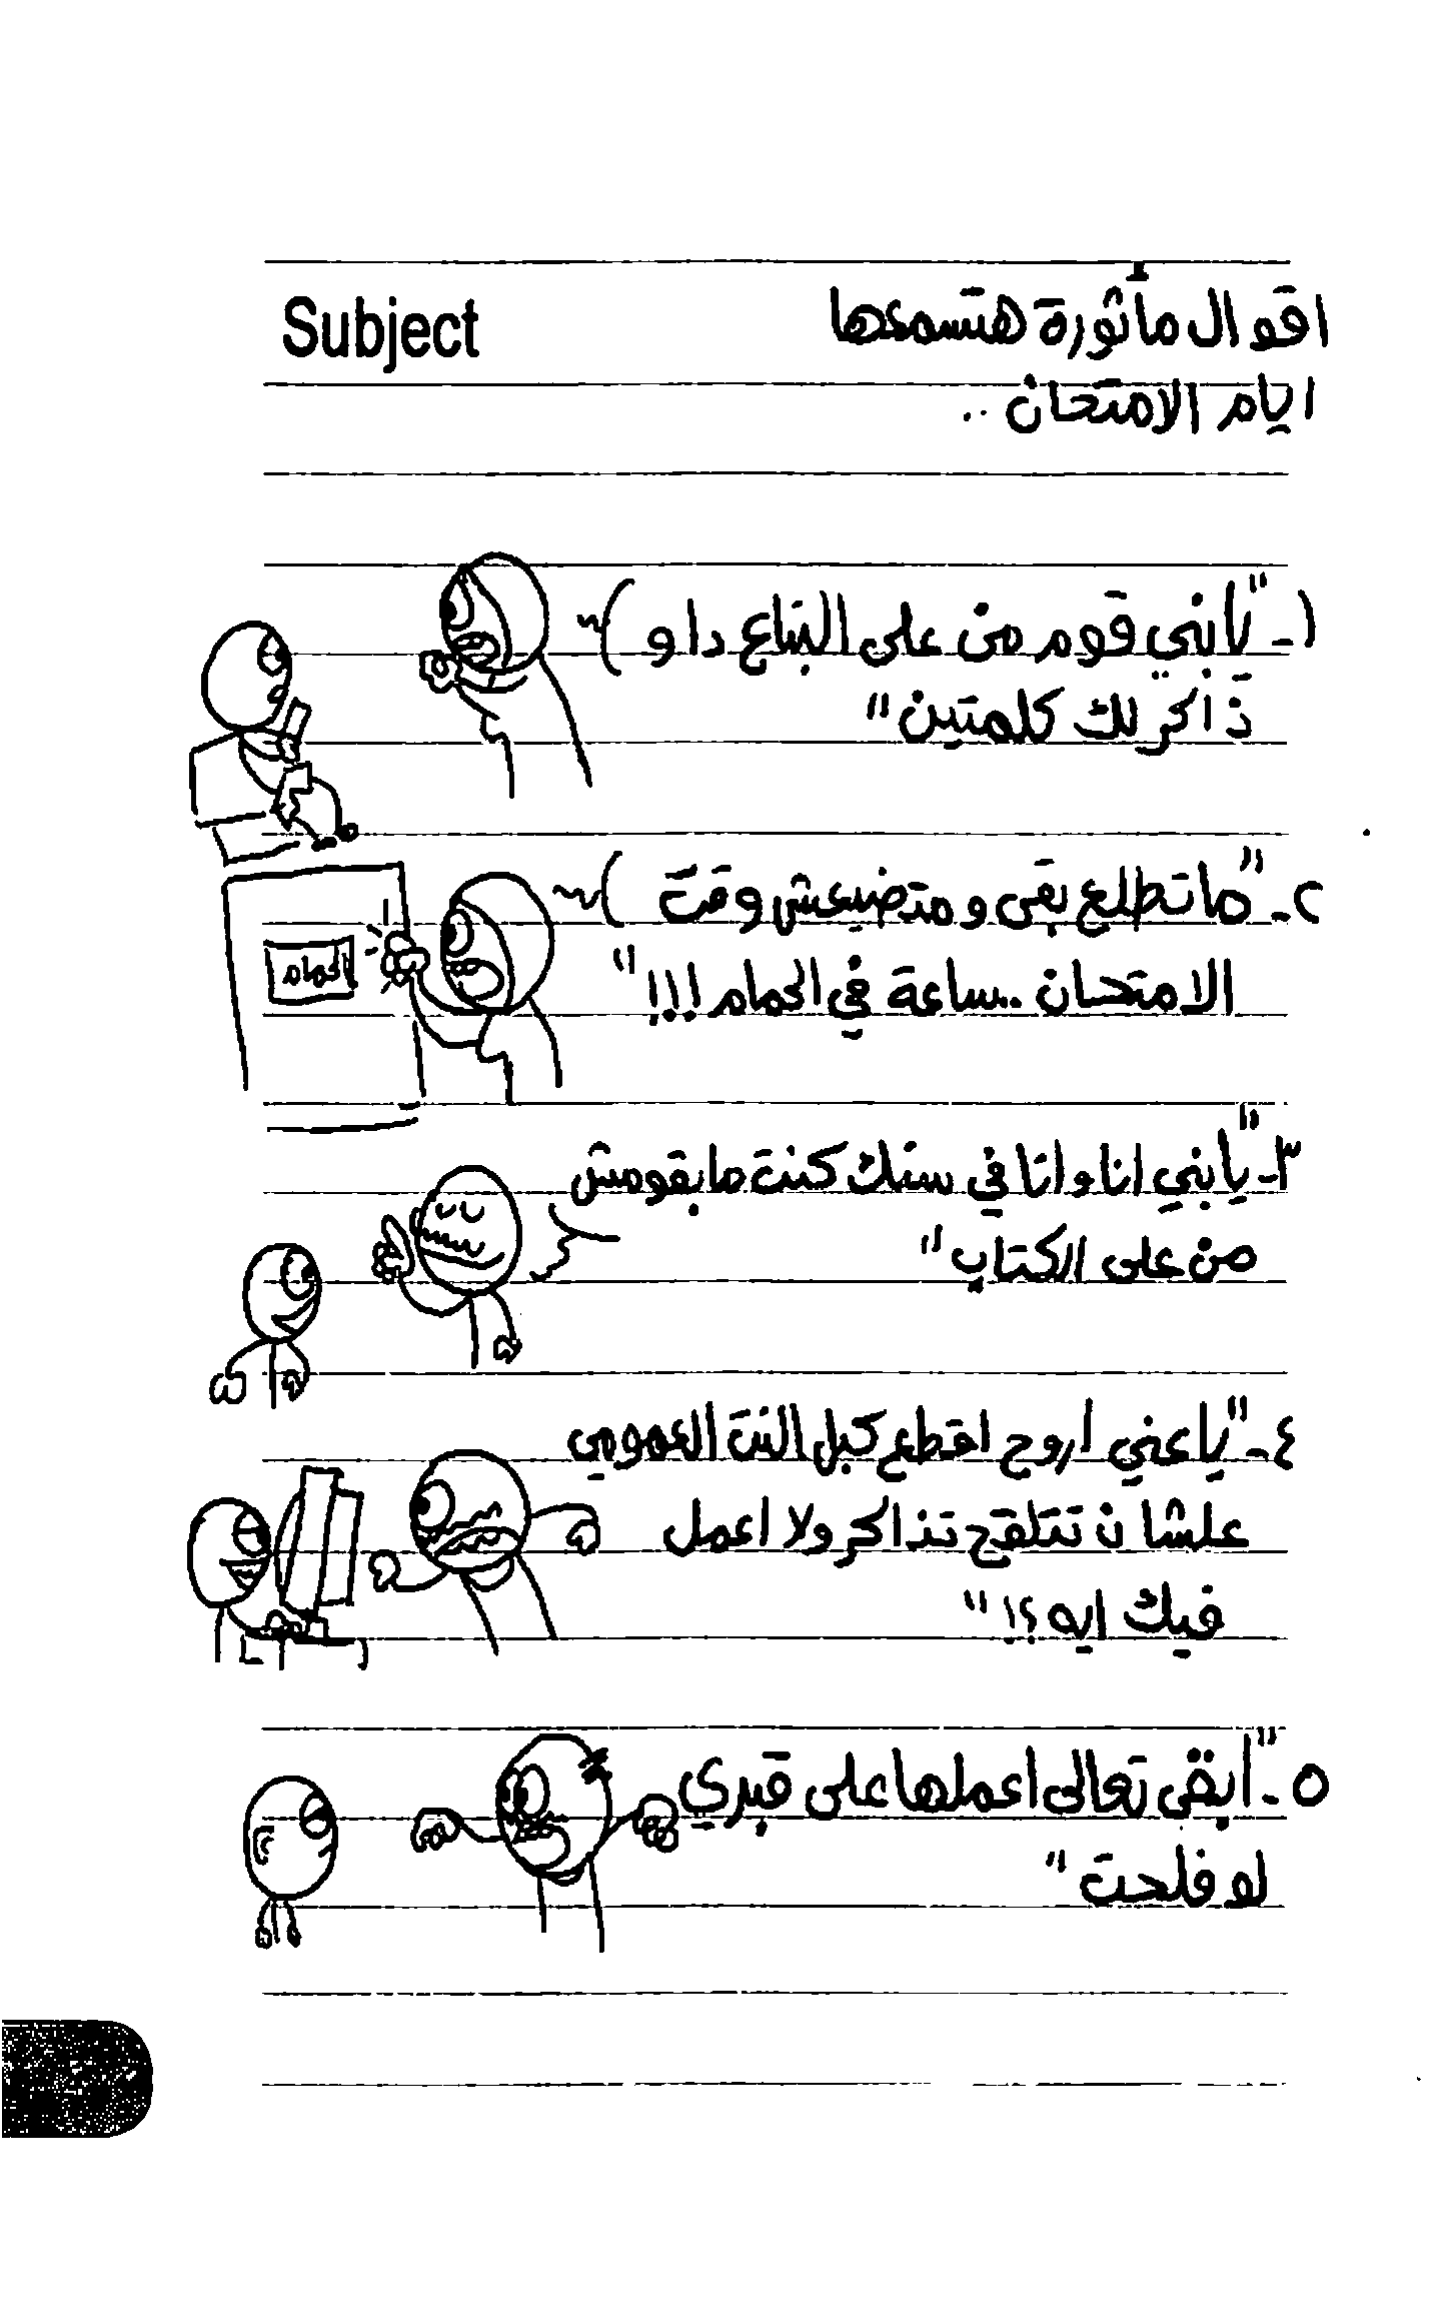 Subject
اقوال مأثورة هتسمعها
ايام الامتحان ..
١- "يأبني قوم من على البتاع دا و
ذاكر لك كلمتين"
٢- "ما تطلع بقى ومتضيعش وقت
الامتحان ..ساعة في الحمام !!!"
الحمام
٣- "يأبني انا وانا في سنك كنت مابقومش
من على الكتاب"
٤- "ياعني اروح اقطع كبل النت العمومي
علشان تتلقح تذاكر ولا اعمل
فيك ايه ؟!"
٥- "أبقى تعالى اعملها على قبري
لو فلحت"